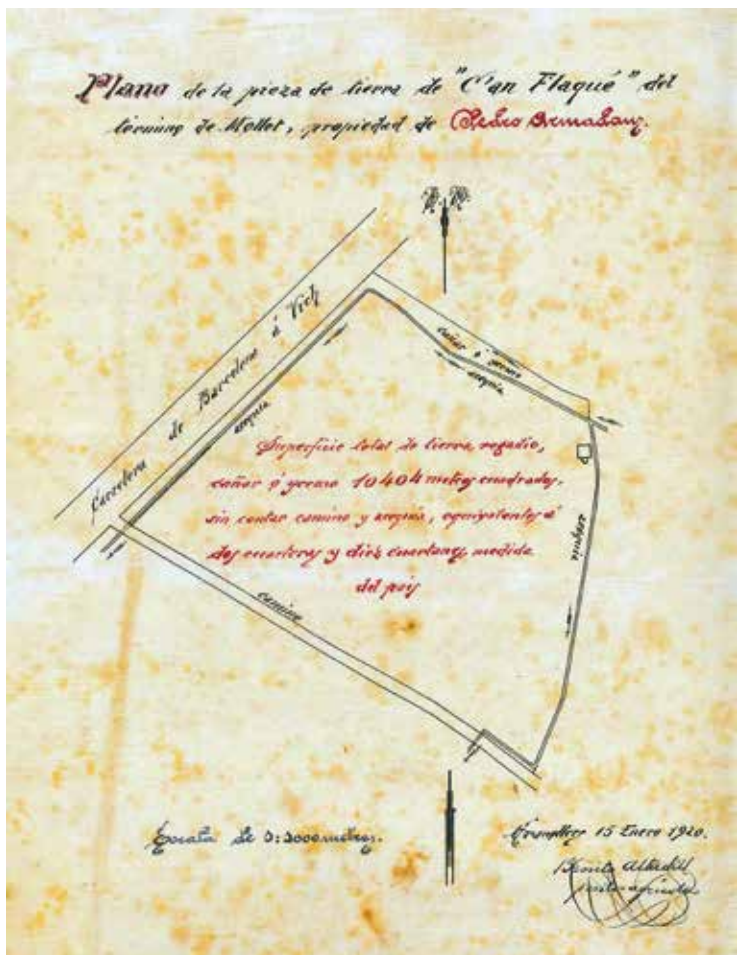 Plano de la pieza de tierra de "Can Flaqué" del
término de Mollet, propiedad de Pedro
N. M.
Carretera de Barcelona á Vich
acequia
cañar ó yermo
acequia
Superficie total de tierra regadio,
cañar ó yermo 10404 metros cuadrados,
sin contar camino y acequia, equivalentes á
dos cuarteras y diez cuartanes, medida
del país
acequia
camino
Escala de metros.
15 Enero 1920.
Benito
perito agrícola